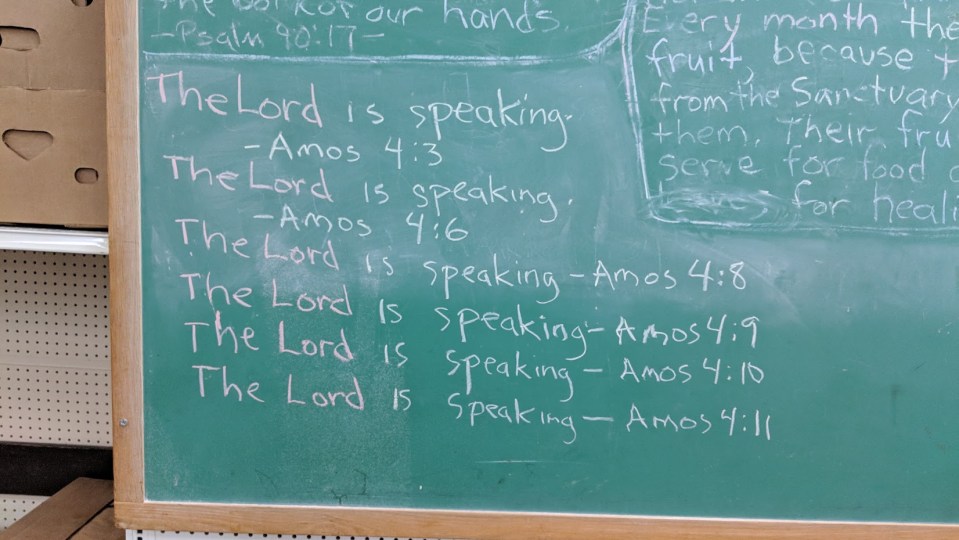 The work of our hands.
-Psalm 90:17-
The Lord is speaking.
-Amos 4:3
The Lord is speaking.
-Amos 4:6
The Lord is speaking - Amos 4:8
The Lord is speaking - Amos 4:9
The Lord is speaking - Amos 4:10
The Lord is speaking - Amos 4:11
Every month the
fruit, because t
from the Sanctuary
them. Their fru
serve for food
for heali